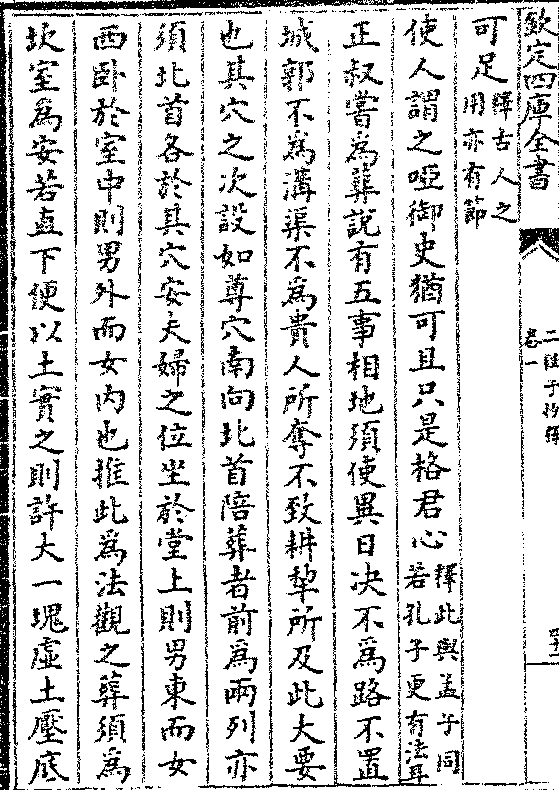 欽定四庫全書
卷一
二程子抄釋
可足釋古人之用亦有節
使人謂之啞御史猶可且只是格君心釋此與孟子同若孔子更有法耳
正叔嘗為葬說有五事相地須使異日決不為路不置
城郭不為溝渠不為貴人所奪不致耕犂所及此大要
也其穴之次設如尊穴南向北首陪葬者前為兩列亦
須北首各於其穴安夫婦之位坐於堂上則男東而女
西卧於室中則男外而女内也推此為法觀之葬須為
坎室為安若直下便以土實之則許大一塊虛土壓底